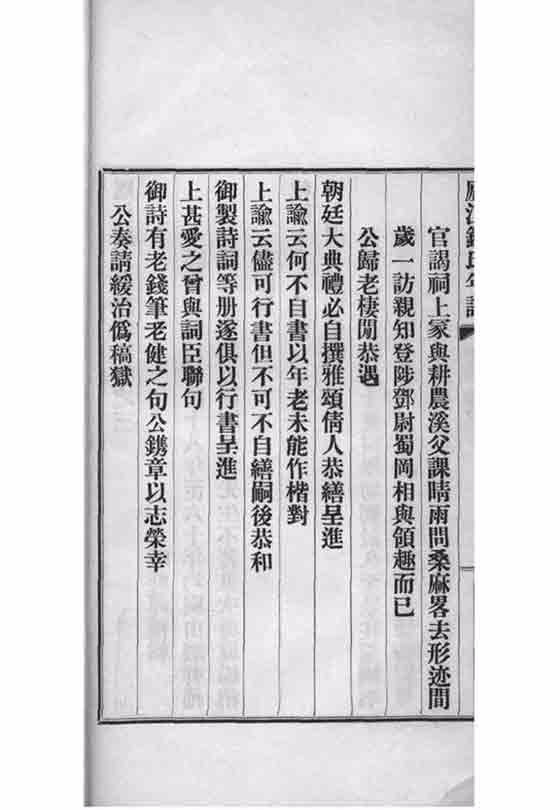 官謁祠上冢與耕農溪父課晴雨問桑麻畧去形迹間
歲一訪親知登陟鄧尉蜀岡相與領趣而已
公歸老棲閒恭遇
朝廷大典禮必自撰雅頌倩人恭繕呈進
上諭云何不自書以年老未能作楷對
上諭云儘可行書但不可不自繕嗣後恭和
御製詩詞等册遂俱以行書呈進
上甚愛之曾與詞臣聯句
御詩有老錢筆老健之句公鐫章以志榮幸
公奏請緩治僞稿獄